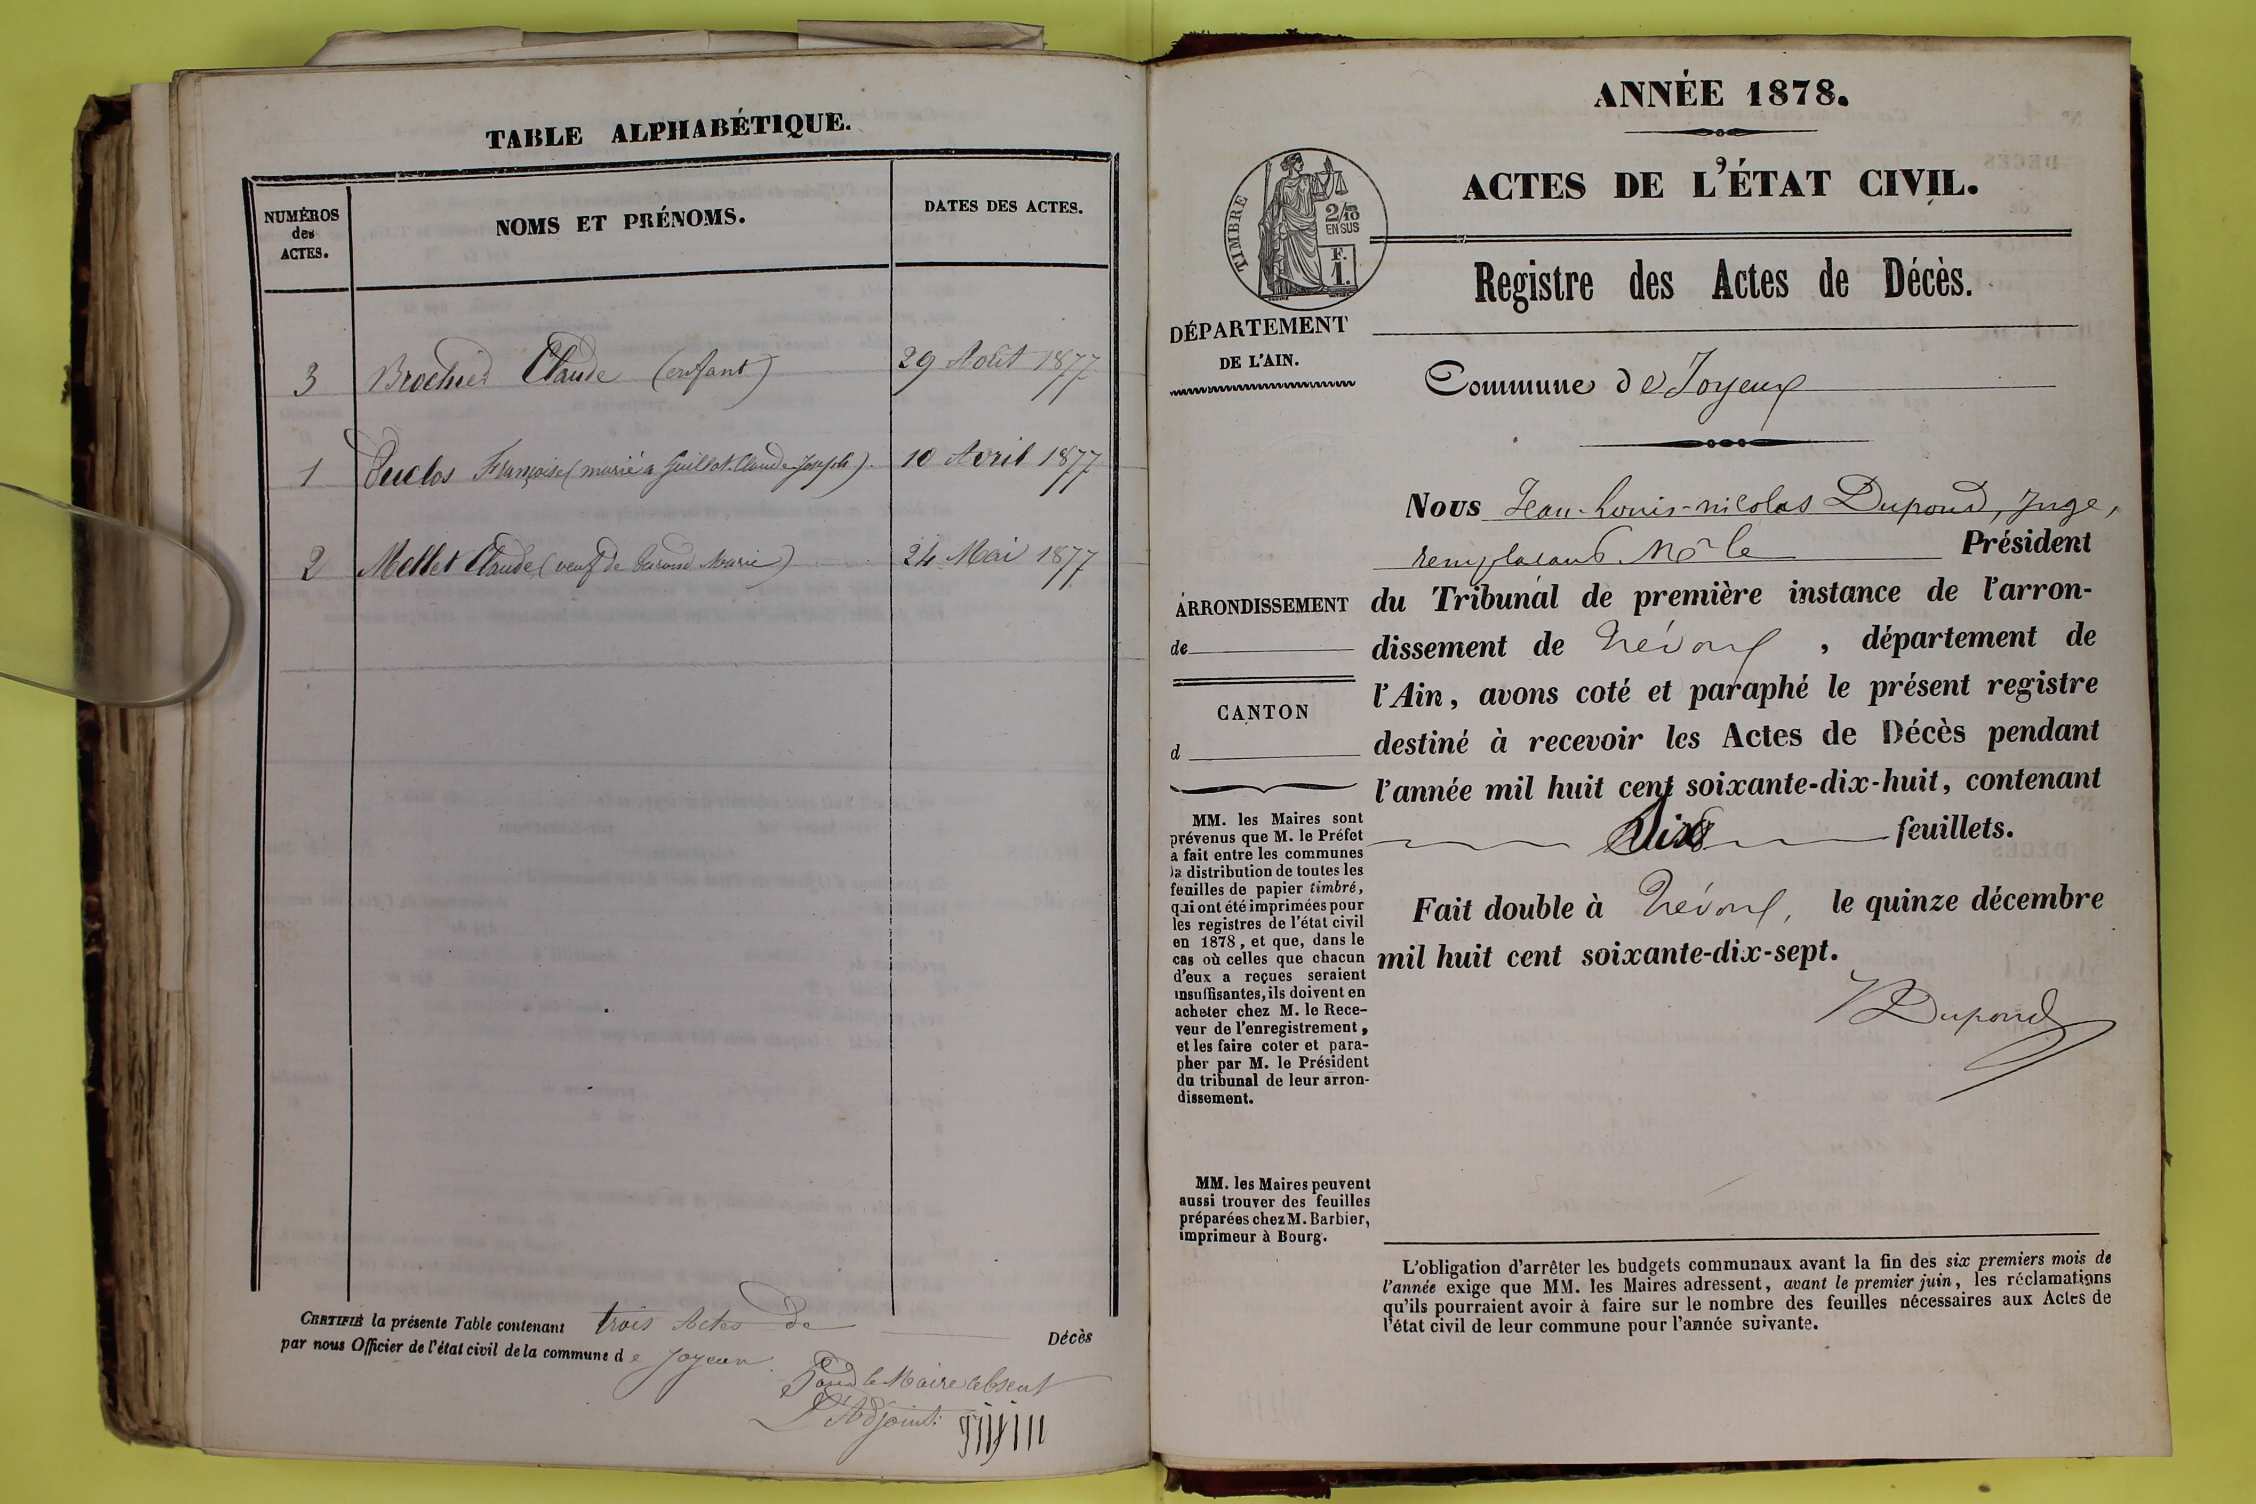 TABLE ALPHABÉTIQUE.
NUMÉROS
des
ACTES.
NOMS ET PRÉNOMS.
DATES DES ACTES.
3 Brochier Claude (enfant) 29 Août 1877
1 Duclos Françoise (marié a Guillot Claude Joseph). 10 Avril 1877
2 Mellet Claude (veuf de Marie) 24 Mai 1877
CERTIFIÉ la présente Table contenant trois Actes de Décès
par nous Officier de l'état civil de la commune de Joyeux.
Pour le Maire absent
L'Adjoint.
ANNÉE 1878.
ACTES DE L'ÉTAT CIVIL.
TIMBRE
2/10
EN SUS
F.
1.
Registre des Actes de Décès.
DÉPARTEMENT
DE L'AIN.
Commune de Joyeux
Nous Jean-Louis-nicolas Dupond, Juge,
remplaçant Mr le Président
du Tribunal de première instance de l'arron-
dissement de Trévoux, département de
l'Ain, avons coté et paraphé le présent registre
destiné à recevoir les Actes de Décès pendant
l'année mil huit cent soixante-dix-huit, contenant
dix feuillets.
Fait double à Trévoux, le quinze décembre
mil huit cent soixante-dix-sept.
Dupond
ARRONDISSEMENT
de
CANTON
d
MM. les Maires sont
prévenus que M. le Préfet
a fait entre les communes
la distribution de toutes les
feuilles de papier timbré,
qui ont été imprimées pour
les registres de l'état civil
en 1878, et que, dans le
cas où celles que chacun
d'eux a reçues seraient
insuffisantes, ils doivent en
acheter chez M. le Rece-
veur de l'enregistrement,
et les faire coter et para-
pher par M. le Président
du tribunal de leur arron-
dissement.
MM. les Maires peuvent
aussi trouver des feuilles
préparées chez M. Barbier,
imprimeur à Bourg.
L'obligation d'arrêter les budgets communaux avant la fin des six premiers mois de
l'année exige que MM. les Maires adressent, avant le premier juin, les réclamations
qu'ils pourraient avoir à faire sur le nombre des feuilles nécessaires aux Actes de
l'état civil de leur commune pour l'année suivante.